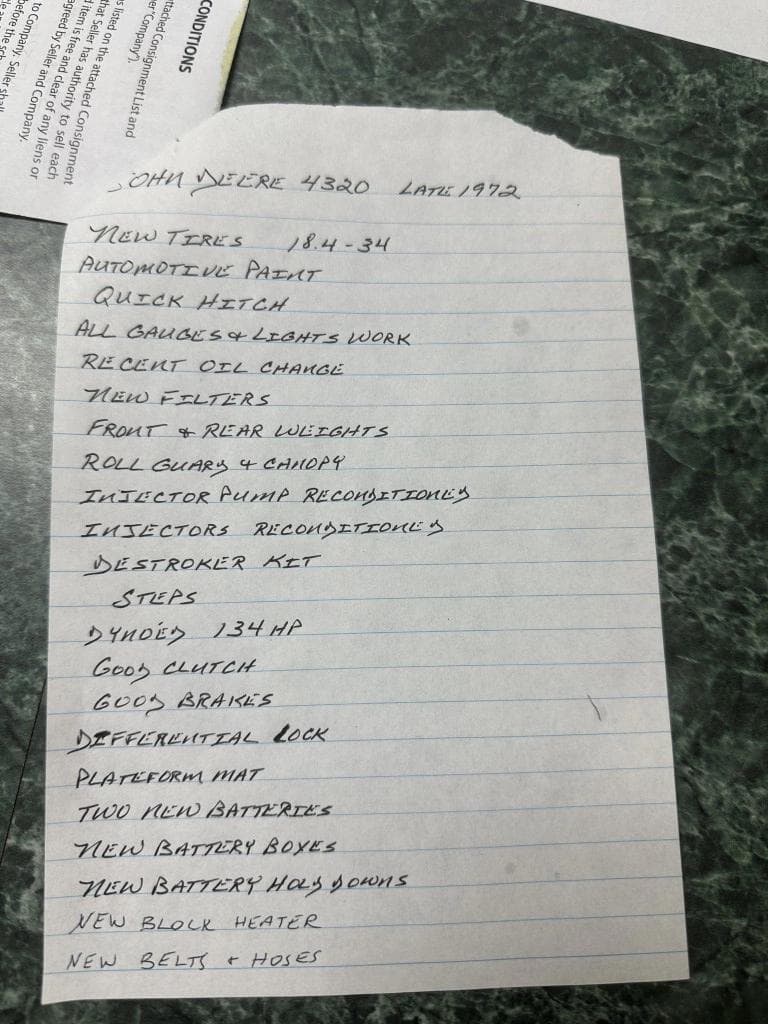 CONDITIONS
attached Consignment List and
er "Company").
s listed on the attached Consignment
that Seller has authority to sell each
d item is free and clear of any liens or
agreed by Seller and Company.
to Company. Seller shall
before the
JOHN DEERE 4320 LATE 1972
NEW TIRES 18.4-34
AUTOMOTIVE PAINT
QUICK HITCH
ALL GAUGES & LIGHTS WORK
RECENT OIL CHANGE
NEW FILTERS
FRONT & REAR WEIGHTS
ROLL GUARD & CANOPY
INJECTOR PUMP RECONDITIONED
INJECTORS RECONDITIONED
DESTROKER KIT
STEPS
DYNOED 134 HP
GOOD CLUTCH
GOOD BRAKES
DIFFERENTIAL LOCK
PLATEFORM MAT
TWO NEW BATTERIES
NEW BATTERY BOXES
NEW BATTERY HOLD DOWNS
NEW BLOCK HEATER
NEW BELTS & HOSES